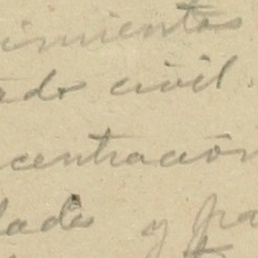 imientos
ado civil.
centración
dades y pa